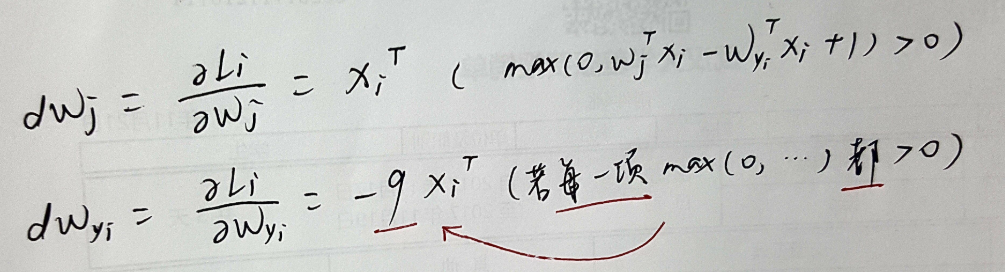 dWj = ∂Li/∂Wj = xiᵀ ( max(0, wjᵀxi - Wyiᵀxi + 1) > 0 )
dWyi = ∂Li/∂Wyi = -9 xiᵀ (若每一项 max(0, ...) 都 > 0)